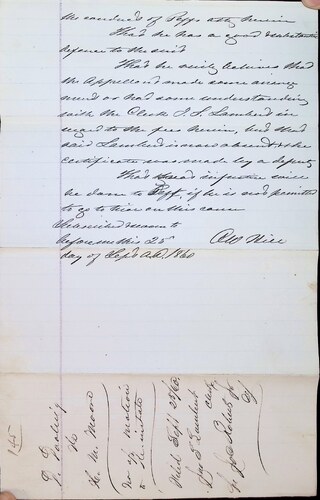 the conduct of Deft atty herein
That he has a good & substantial
defense to the suit
That he verily believes that
the Appellant made some arrange
ment or had some understanding
with the Clerk J. S. Lambert in
regard to the fees herein, but that
said Lambert is now absent & the
certificate was made by a deputy
That great injustice will
be done to Deft, if he is not permitted
to go to trial on this cause
Subscribed & sworn to
before me this 25
day of Sept A.D. 1860
149
vs
H. M. Moore
No of motion
to Reinstate
Filed Sept 25/60
Lambert
Clerk
By
Dy